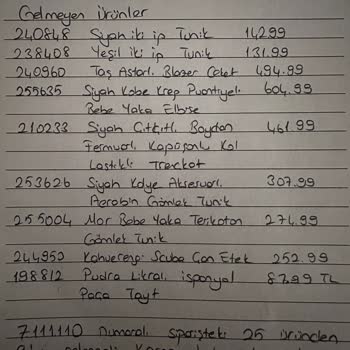 Gelmeyen ürünler
240848 Siyah iki ip Tunik 142.99
238408 Yeşil iki ip Tunik 131.99
240960 Taş Astarlı Blazer Ceket 494.99
255635 Siyah Kobe Krep Puantiyeli 604.99
Bebe Yaka Elbise
210233 Siyah Çıtçıtlı Boydan 461.99
Fermuarlı Kapüşonlu Kol
Lastikli Trençkot
253626 Siyah Kolye Aksesuarlı 307.99
Aerobin Gömlek Tunik
255004 Mor Bebe Yaka Terikoton 274.99
Gömlek Tunik
244950 Kahverengi Scuba Çan Etek 252.99
198812 Pudra Likralı İspanyol 87,99 TL
Paça Tayt
7111110 Numaralı siparişteki 25 üründen